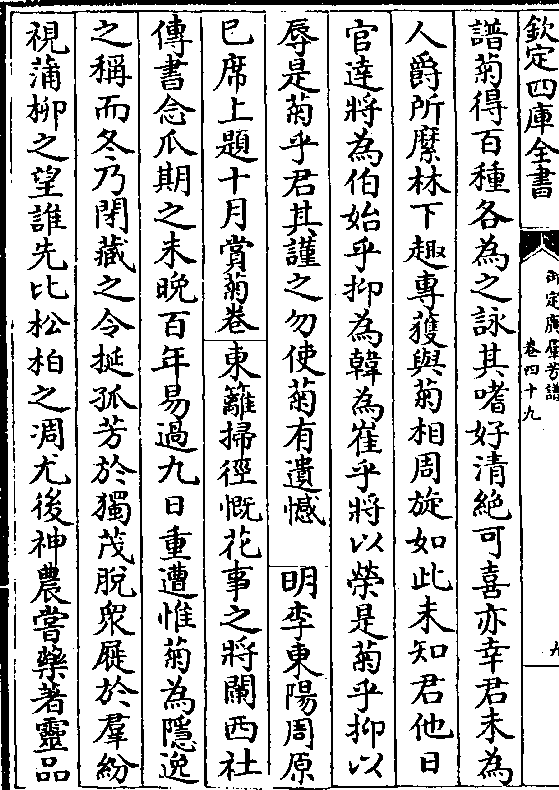 欽定四庫全書
御定廣羣芳譜
卷四十九
九
譜菊得百種各為之詠其嗜好清絶可喜亦幸君未為
人爵所縻林下趣專獲與菊相周旋如此未知君他日
官達將為伯始乎抑為韓為崔乎將以榮是菊乎抑以
辱是菊乎君其謹之勿使菊有遺憾 明李東陽周原
已席上題十月賞菊卷 東籬掃徑慨花事之將闌西社
傳書念瓜期之未晚百年易過九日重遭惟菊為隱逸
之稱而冬乃閉藏之令挺孤芳於獨茂脱衆屣於羣紛
視蒲柳之望誰先比松柏之凋尤後神農嘗藥著靈品